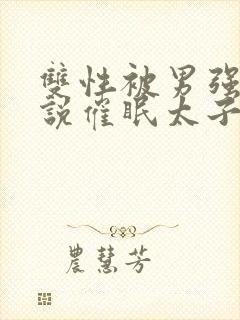 雙性被男强
說催眠太子
農慧芳